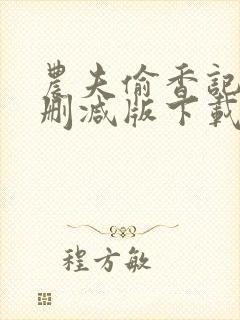 農夫偷香記
删減版下載
程方敏